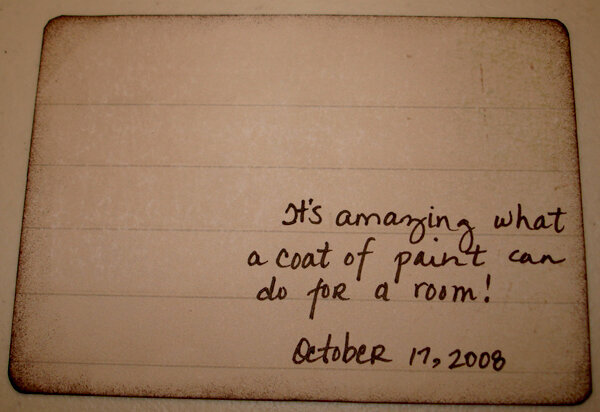 It's amazing what
a coat of paint can
do for a room!
October 17, 2008